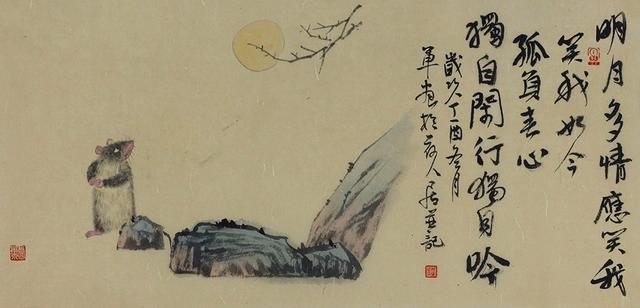 明月多情應笑我
笑我如今
孤負春心
獨自閑行獨自吟
歲次丁酉冬月
軍畫於人居並記